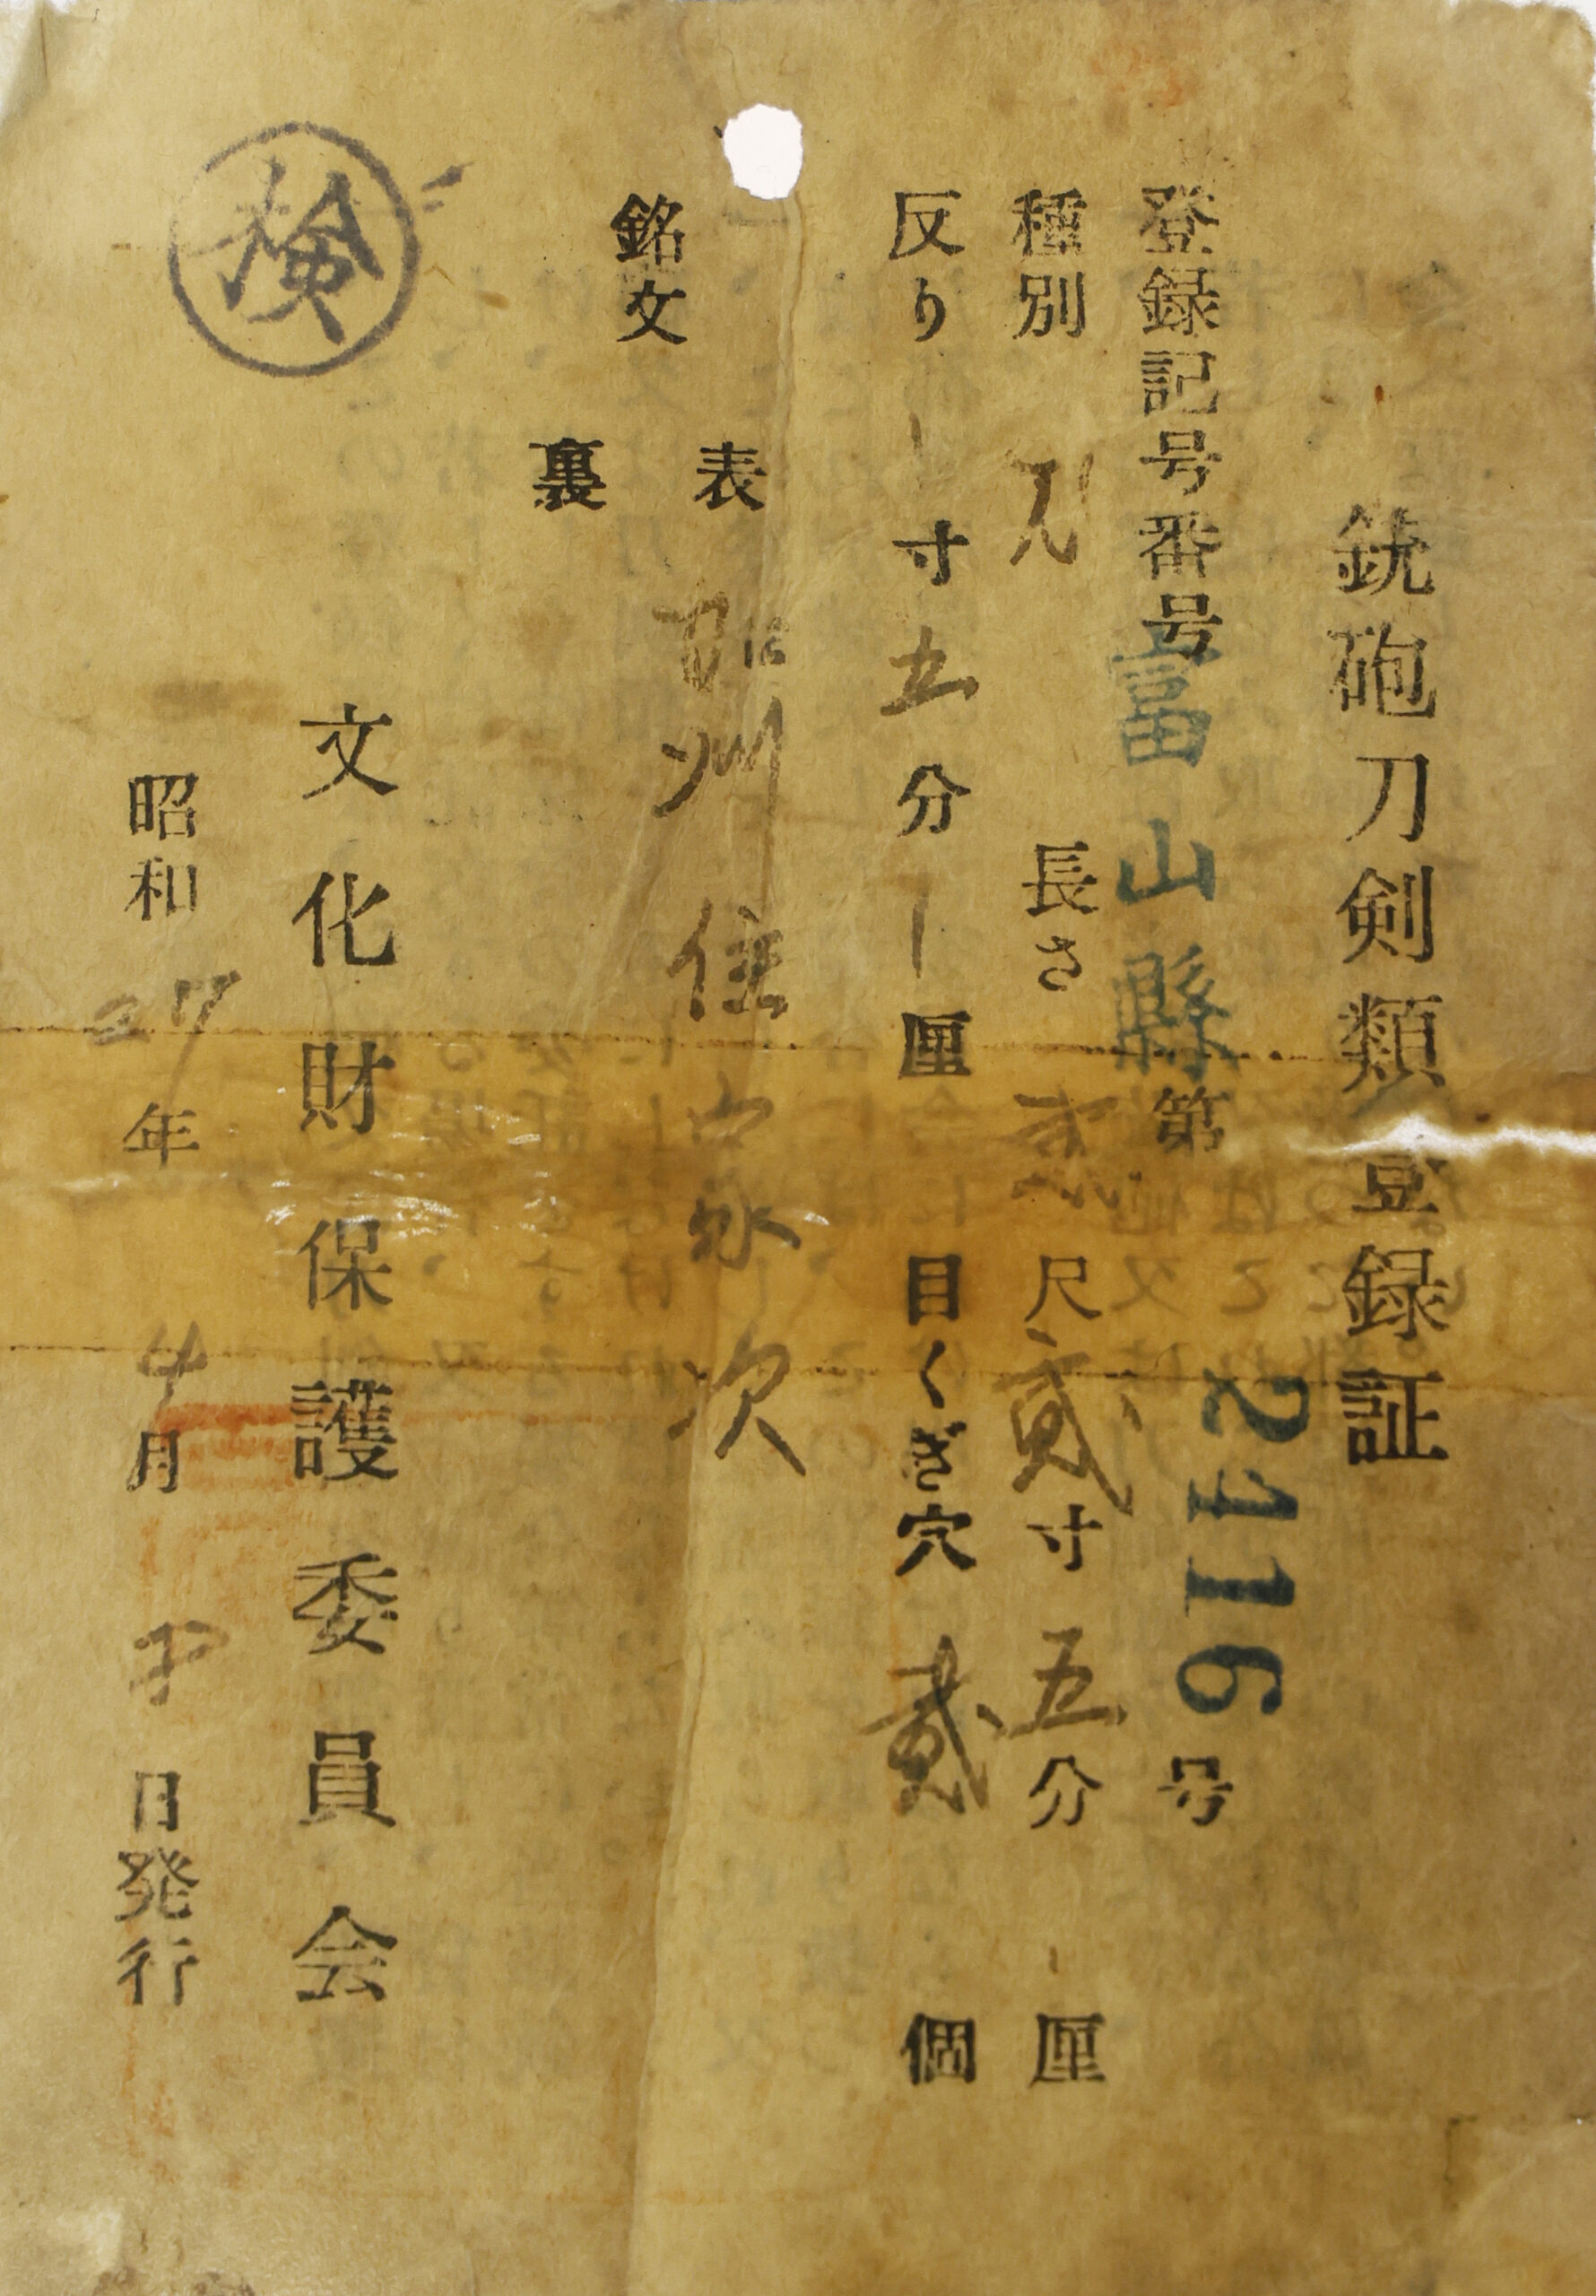 銃砲刀剣類登録証
登録記号番号 富山縣第2416号
種別 刀 長さ 貳尺貳寸五分 ー 厘
反り ー 寸五分 ー 厘 目くぎ穴 貳 個
銘文
表 州住家次
裏
文化財保護委員会
昭和27年4月 日発行
検